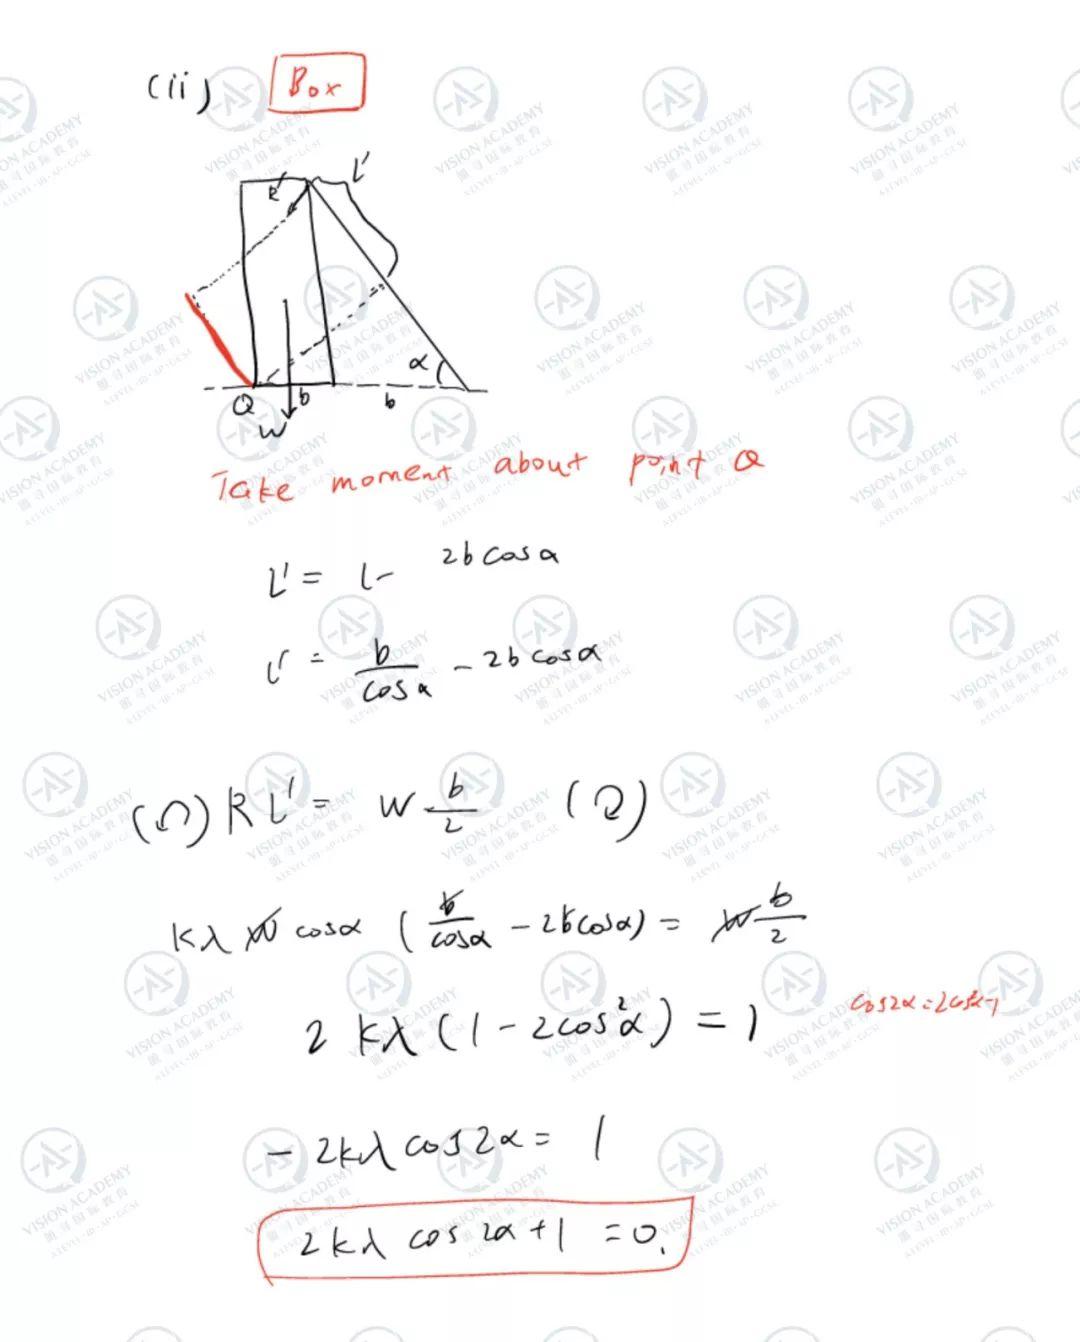 (ii) Box
R' L'
α
Q b b
W
Take moment about point Q
L' = l - 2b cos α
L' = b/cos α - 2b cos α
(↺) R L' = W b/2 (↻)
kλ W cos α (b/cos α - 2b cos α) = W b/2
2 kλ (1 - 2cos²α) = 1 cos2α = 2cos²α-1
- 2kλ cos 2α = 1
2kλ cos 2α + 1 = 0.
VISION ACADEMY
国际教育
A LEVEL·IB·AP·GCSE